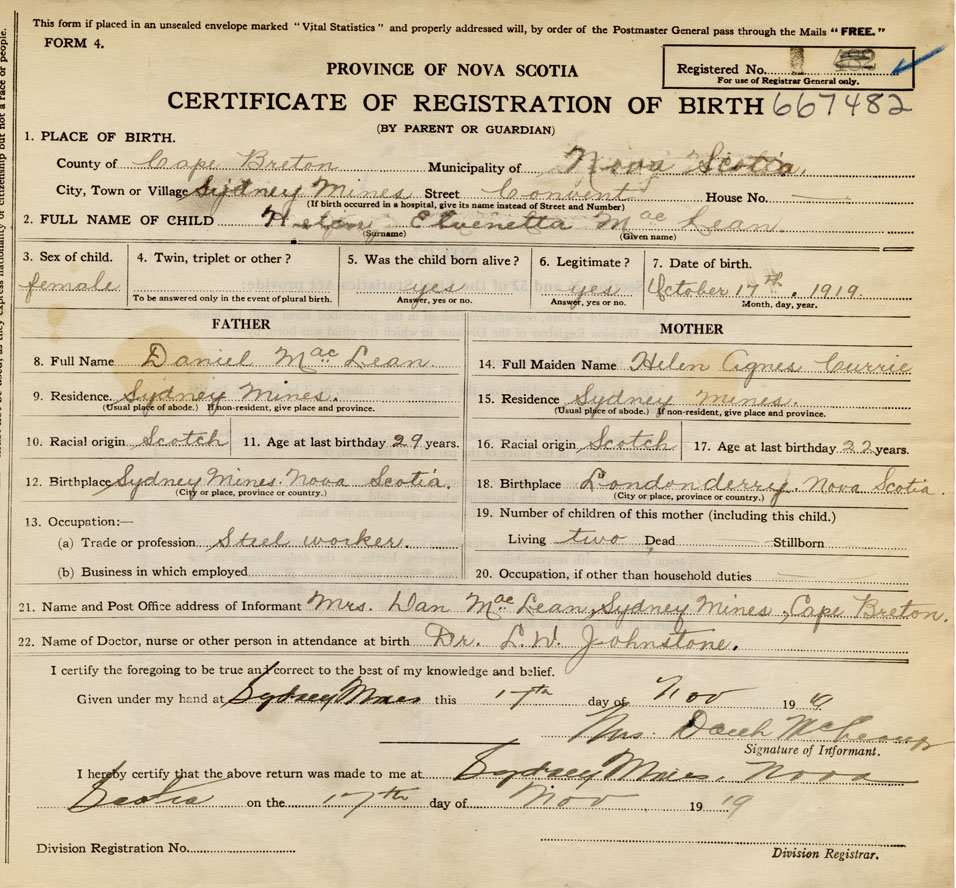 This form if placed in an unsealed envelope marked "Vital Statistics" and properly addressed will, by order of the Postmaster General pass through the Mails "FREE."
FORM 4.
Registered No.
For use of Registrar General only.
PROVINCE OF NOVA SCOTIA
CERTIFICATE OF REGISTRATION OF BIRTH 667482
(BY PARENT OR GUARDIAN)
1. PLACE OF BIRTH.
County of Cape Breton Municipality of Nova Scotia.
City, Town or Village Sydney Mines Street Convent House No.
(If birth occurred in a hospital, give its name instead of Street and Number)
2. FULL NAME OF CHILD Helen Elvenetta Mac Lean
(Surname) (Given name)
3. Sex of child. 4. Twin, triplet or other? 5. Was the child born alive? 6. Legitimate? 7. Date of birth.
female yes yes October 17th, 1919.
To be answered only in the event of plural birth. Answer, yes or no. Answer, yes or no. Month, day, year.
FATHER
8. Full Name Daniel Mac Lean
9. Residence. Sydney Mines.
(Usual place of abode.) If non-resident, give place and province.
10. Racial origin Scotch 11. Age at last birthday 29 years.
12. Birthplace Sydney Mines. Nova Scotia.
(City or place, province or country.)
13. Occupation:—
(a) Trade or profession Steel worker.
(b) Business in which employed
MOTHER
14. Full Maiden Name Helen Agnes Currie
15. Residence Sydney Mines.
(Usual place of abode.) If non-resident, give place and province.
16. Racial origin Scotch 17. Age at last birthday 22 years.
18. Birthplace Londonderry. Nova Scotia.
(City or place, province or country.)
19. Number of children of this mother (including this child.)
Living two Dead Stillborn
20. Occupation, if other than household duties
21. Name and Post Office address of Informant Mrs. Dan Mac Lean, Sydney Mines, Cape Breton.
22. Name of Doctor, nurse or other person in attendance at birth Dr. L. W. Johnstone.
I certify the foregoing to be true and correct to the best of my knowledge and belief.
Given under my hand at Sydney Mines this 17th day of Nov 19 19
Mrs.
Signature of Informant.
I hereby certify that the above return was made to me at Sydney Mines, Nova
Scotia on the 17th day of Nov 19 19
Division Registration No.
Division Registrar.